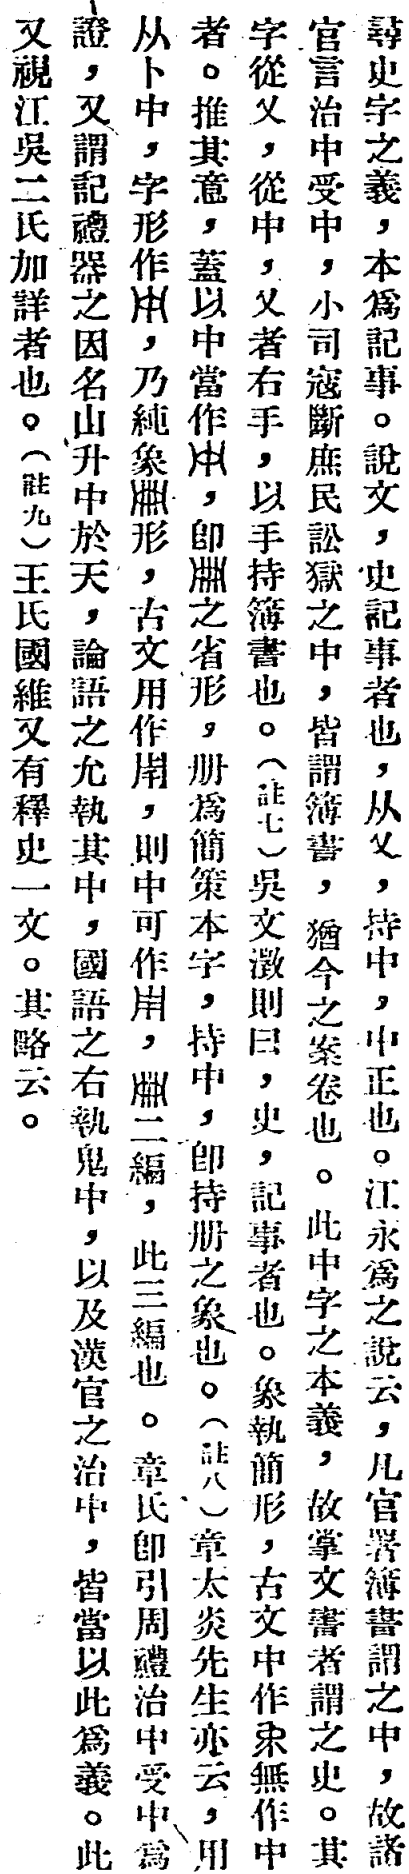 尋史字之義，本爲記事。說文，史記事者也，从又，持中，中正也。江永爲之說云，凡官署簿書謂之中，故諸
官言治中受中，小司寇斷庶民訟獄之中，皆謂簿書，猶今之案卷也。此中字之本義，故掌文書者謂之史。其
字從又，從中，又者右手，以手持簿書也。（註七）吳文澂則曰，史，記事者也。象執簡形，古文中作無作中
者。推其意，蓋以中當作，即之省形，册爲簡策本字，持中，即持册之象也。（註八）章太炎先生亦云，用
从卜中，字形作，乃純象形，古文用作，則中可作，二編，此三編也。章氏即引周禮治中受中爲
證，又謂記禮器之因名山升中於天，論語之允執其中，國語之右執鬼中，以及漢官之治中，皆當以此爲義。此
又視江吳二氏加詳者也。（註九）王氏國維又有釋史一文。其略云。